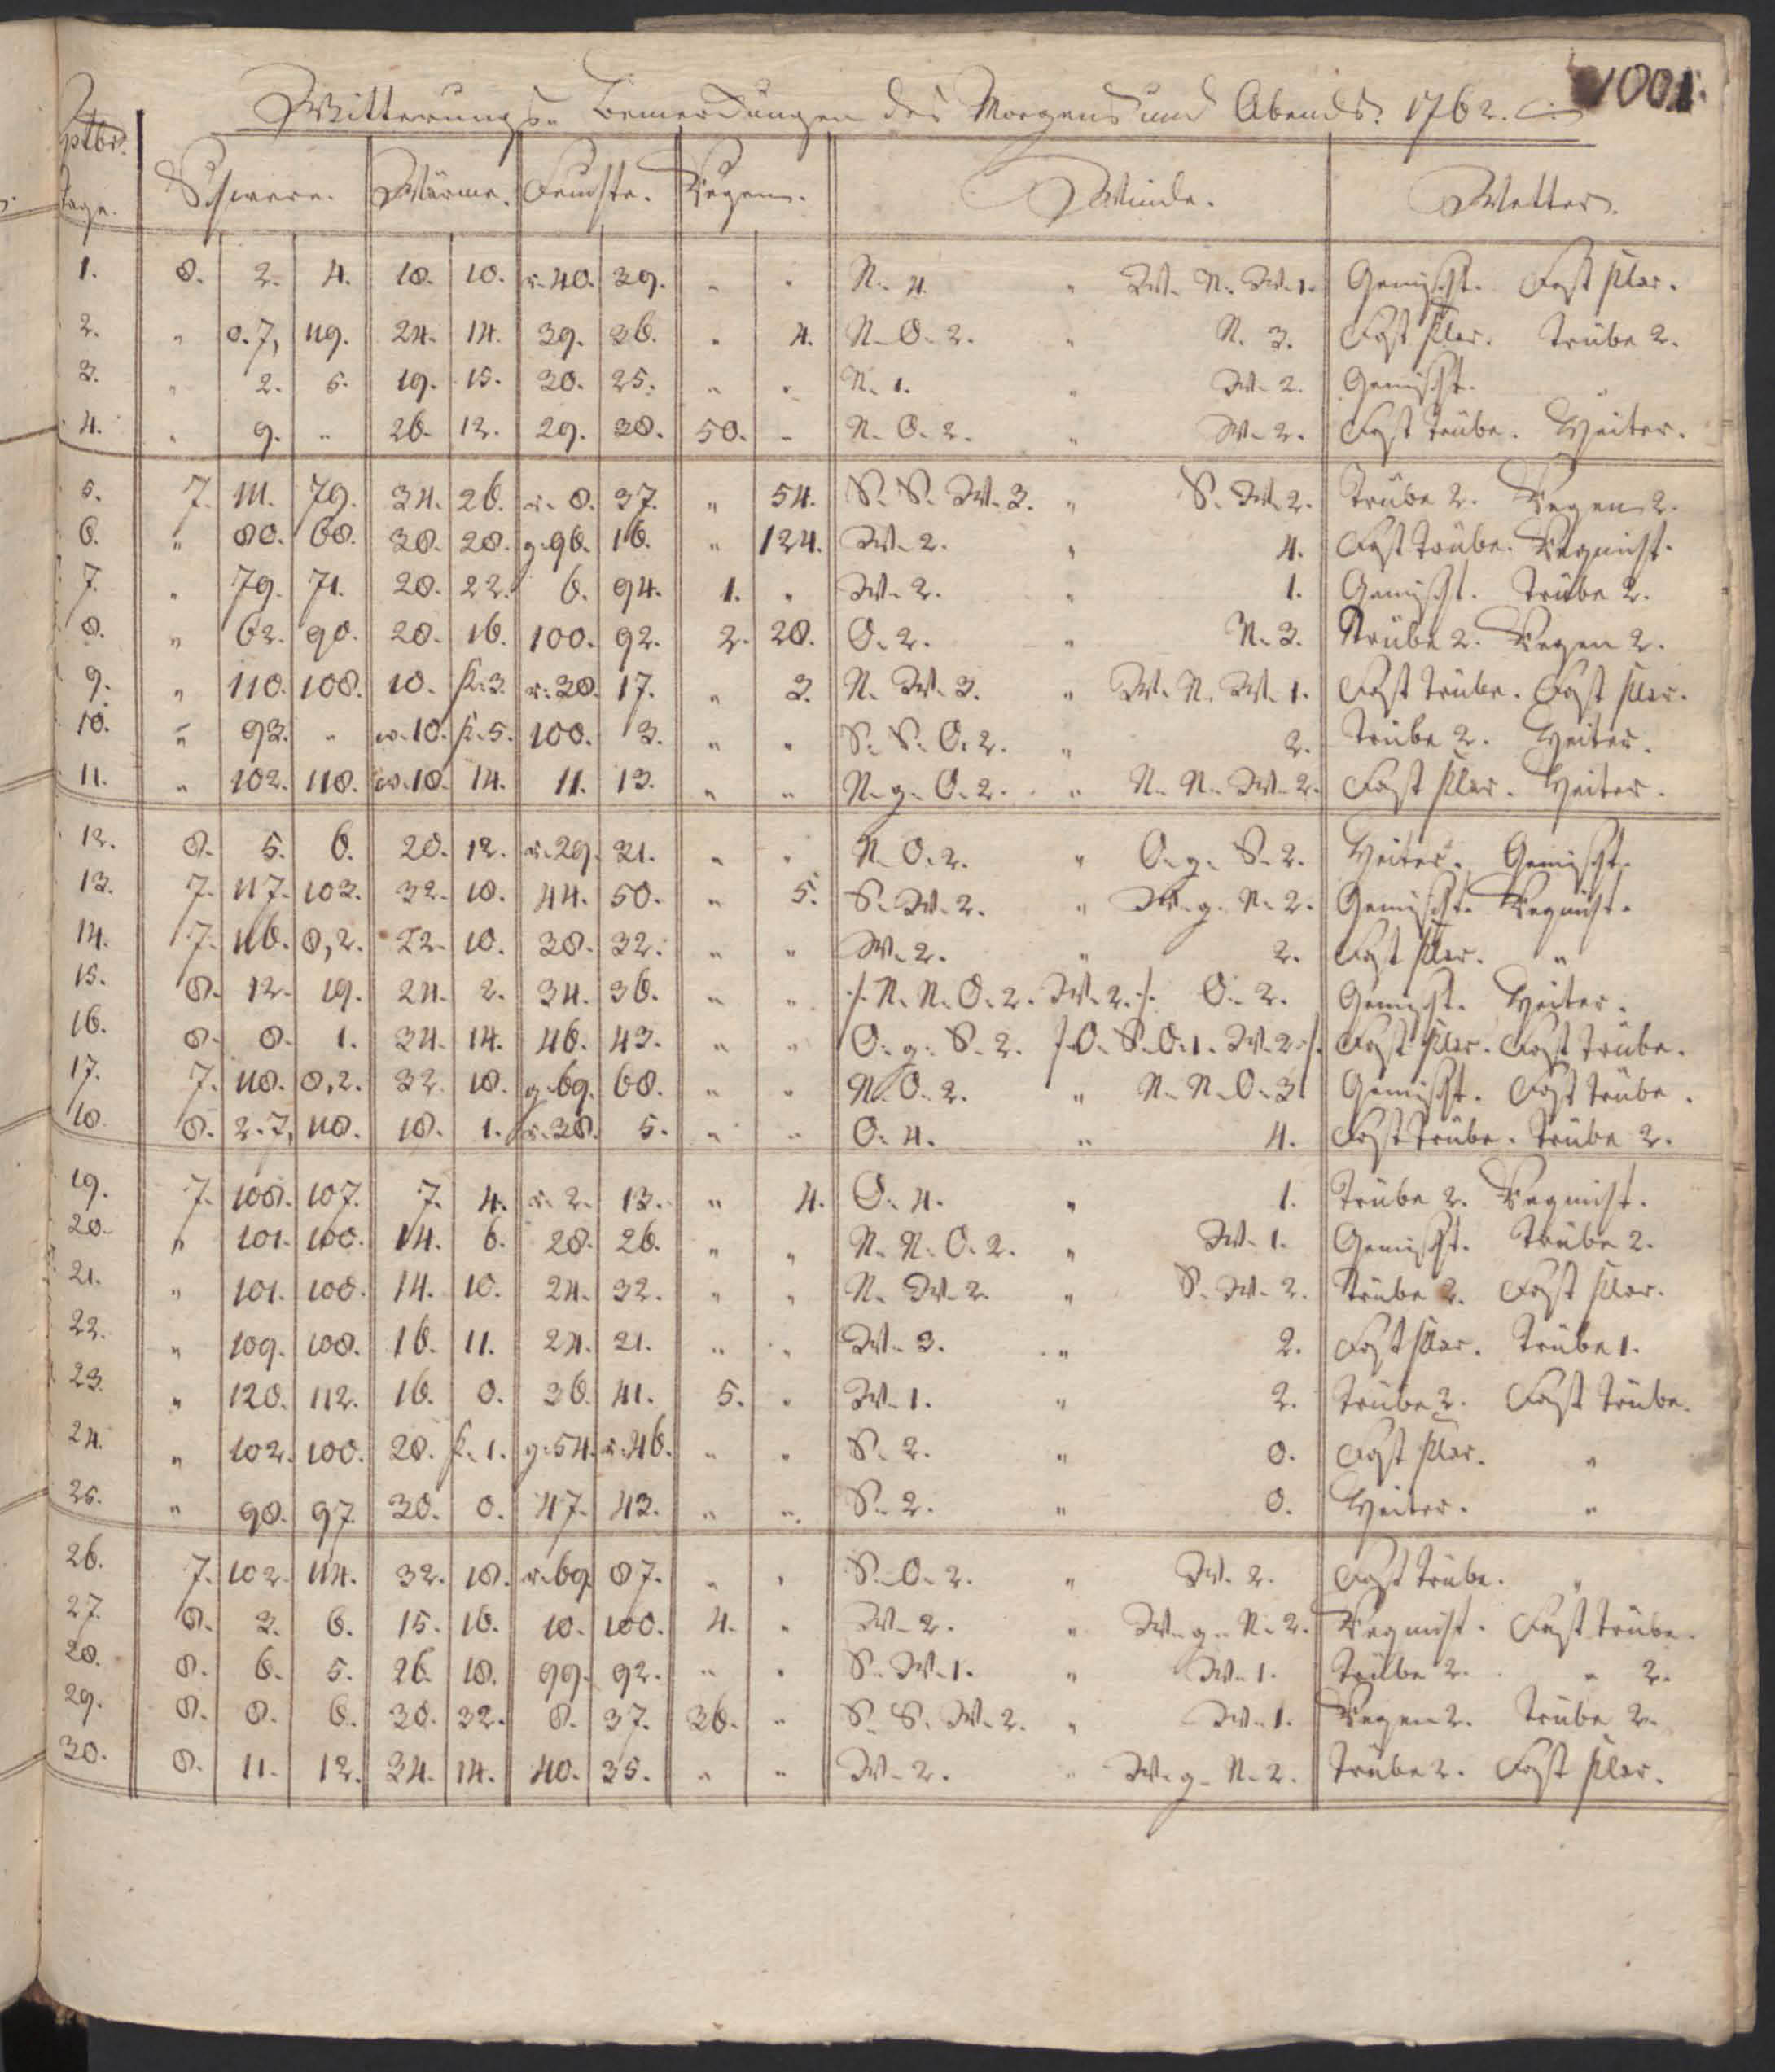 1001.
Witterungs- Bemerckungen des Morgens und Abends. 1762.
7ptbr.
Tage. Schwere. Wärme. Feuchte. Regen. Winde. Wetter.
1. 8. 2. 4. 18. 10. r. 40. 39. " " N. 4. " W. N. W. 1. Gemischt. Fast klar.
2. " 8. 7, 119. 24. 14. 39. 36. " 4. N. O. 2. " N. 3. Fast klar. Trübe 2.
3. " 2. 5. 19. 15. 30. 25. " " N. 1. " W. 2. Gemischt. "
4. " 9. " 26. 12. 29. 38. 50. " N. O. 2. " W. 2. Fast trübe. Heiter.
5. 7. 111. 79. 34. 26. r. 8. 37. " 54. S. S. W. 3. " S. W. 2. Trübe 2. Regen 2.
6. " 80. 68. 38. 28. g. 96. 16. " 124. W. 2. " 4. Fast trübe. Regnicht.
7. " 79. 71. 28. 22. 6. 94. 1. " W. 2. " 1. Gemischt. Trübe 2.
8. " 62. 90. 20. 16. 100. 92. 2. 28. O. 2. " N. 3. Trübe 2. Regen 2.
9. " 110. 108. 10. k. 3. r. 38. 17. " 3. N. W. 3. " W. N. W. 1. Fast trübe. Fast klar.
10. " 93. " w. 10. k. 5. 100. 3. " " S. S. O. 2. " 2. Trübe 2. Heiter.
11. " 102. 118. w. 18. 14. 11. 13. " " N. g. O. 2. " N. N. W. 2. Fast klar. Heiter.
12. 8. 5. 6. 20. 12. r. 29. 31. " " N. O. 2. " O. g. S. 2. Heiter. Gemischt.
13. 7. 117. 103. 32. 18. 44. 50. " 5. S. W. 2. " W. g. N. 2. Gemischt. Regnicht.
14. 7. 116. 8, 2. 22. 10. 38. 32. " " W. 2. " 2. Fast klar. "
15. 8. 12. 19. 24. 2. 34. 36. " " /. N. N. O. 2. W. 2. /. O. 2. Gemischt. Heiter.
16. 8. 8. 1. 34. 14. 46. 43. " " O. g. S. 2. /. O. S. O. 1. W. 2. /. Fast klar. Fast trübe.
17. 7. 118. 8, 2. 32. 18. g. 69. 68. " " N. O. 2. " N. N. O. 3. Gemischt. Fast trübe.
18. 8. 2. 7, 118. 18. 1. r. 38. 5. " " O. 4. " 4. Fast trübe. Trübe 2.
19. 7. 108. 107. 7. 4. r. 2. 13. " 4. O. 4. " 1. Trübe 2. Regnicht.
20. " 101. 100. 14. 6. 28. 26. " " N. N. O. 2. " W. 1. Gemischt. Trübe 2.
21. " 101. 108. 14. 10. 24. 32. " " N. W. 2. " S. W. 2. Trübe 2. Fast klar.
22. " 109. 108. 16. 11. 24. 21. " " W. 3. " 2. Fast klar. Trübe 1.
23. " 120. 112. 16. 0. 36. 41. 5. " W. 1. " 2. Trübe 2. Fast trübe.
24. " 102. 100. 28. k. 1. g. 54. r. 46. " " S. 2. " 0. Fast klar. "
25. " 98. 97. 30. 0. 47. 43. " " S. 2. " 0. Heiter. "
26. 7. 102. 114. 32. 18. r. 69. 87. " " S. O. 2. " W. 2. Fast trübe. "
27. 8. 3. 6. 15. 16. 10. 100. 4. " W. 2. " W. g. N. 2. Regnicht. Fast trübe.
28. 8. 6. 5. 26. 18. 99. 92. " " S. W. 1. " W. 1. Trübe 2. " 2.
29. 8. 8. 6. 30. 32. 8. 37. 36. " S. S. W. 2. " W. 1. Regen 2. Trübe 2.
30. 8. 11. 12. 34. 14. 40. 35. " " W. 2. " W. g. N. 2. Trübe 2. Fast klar.